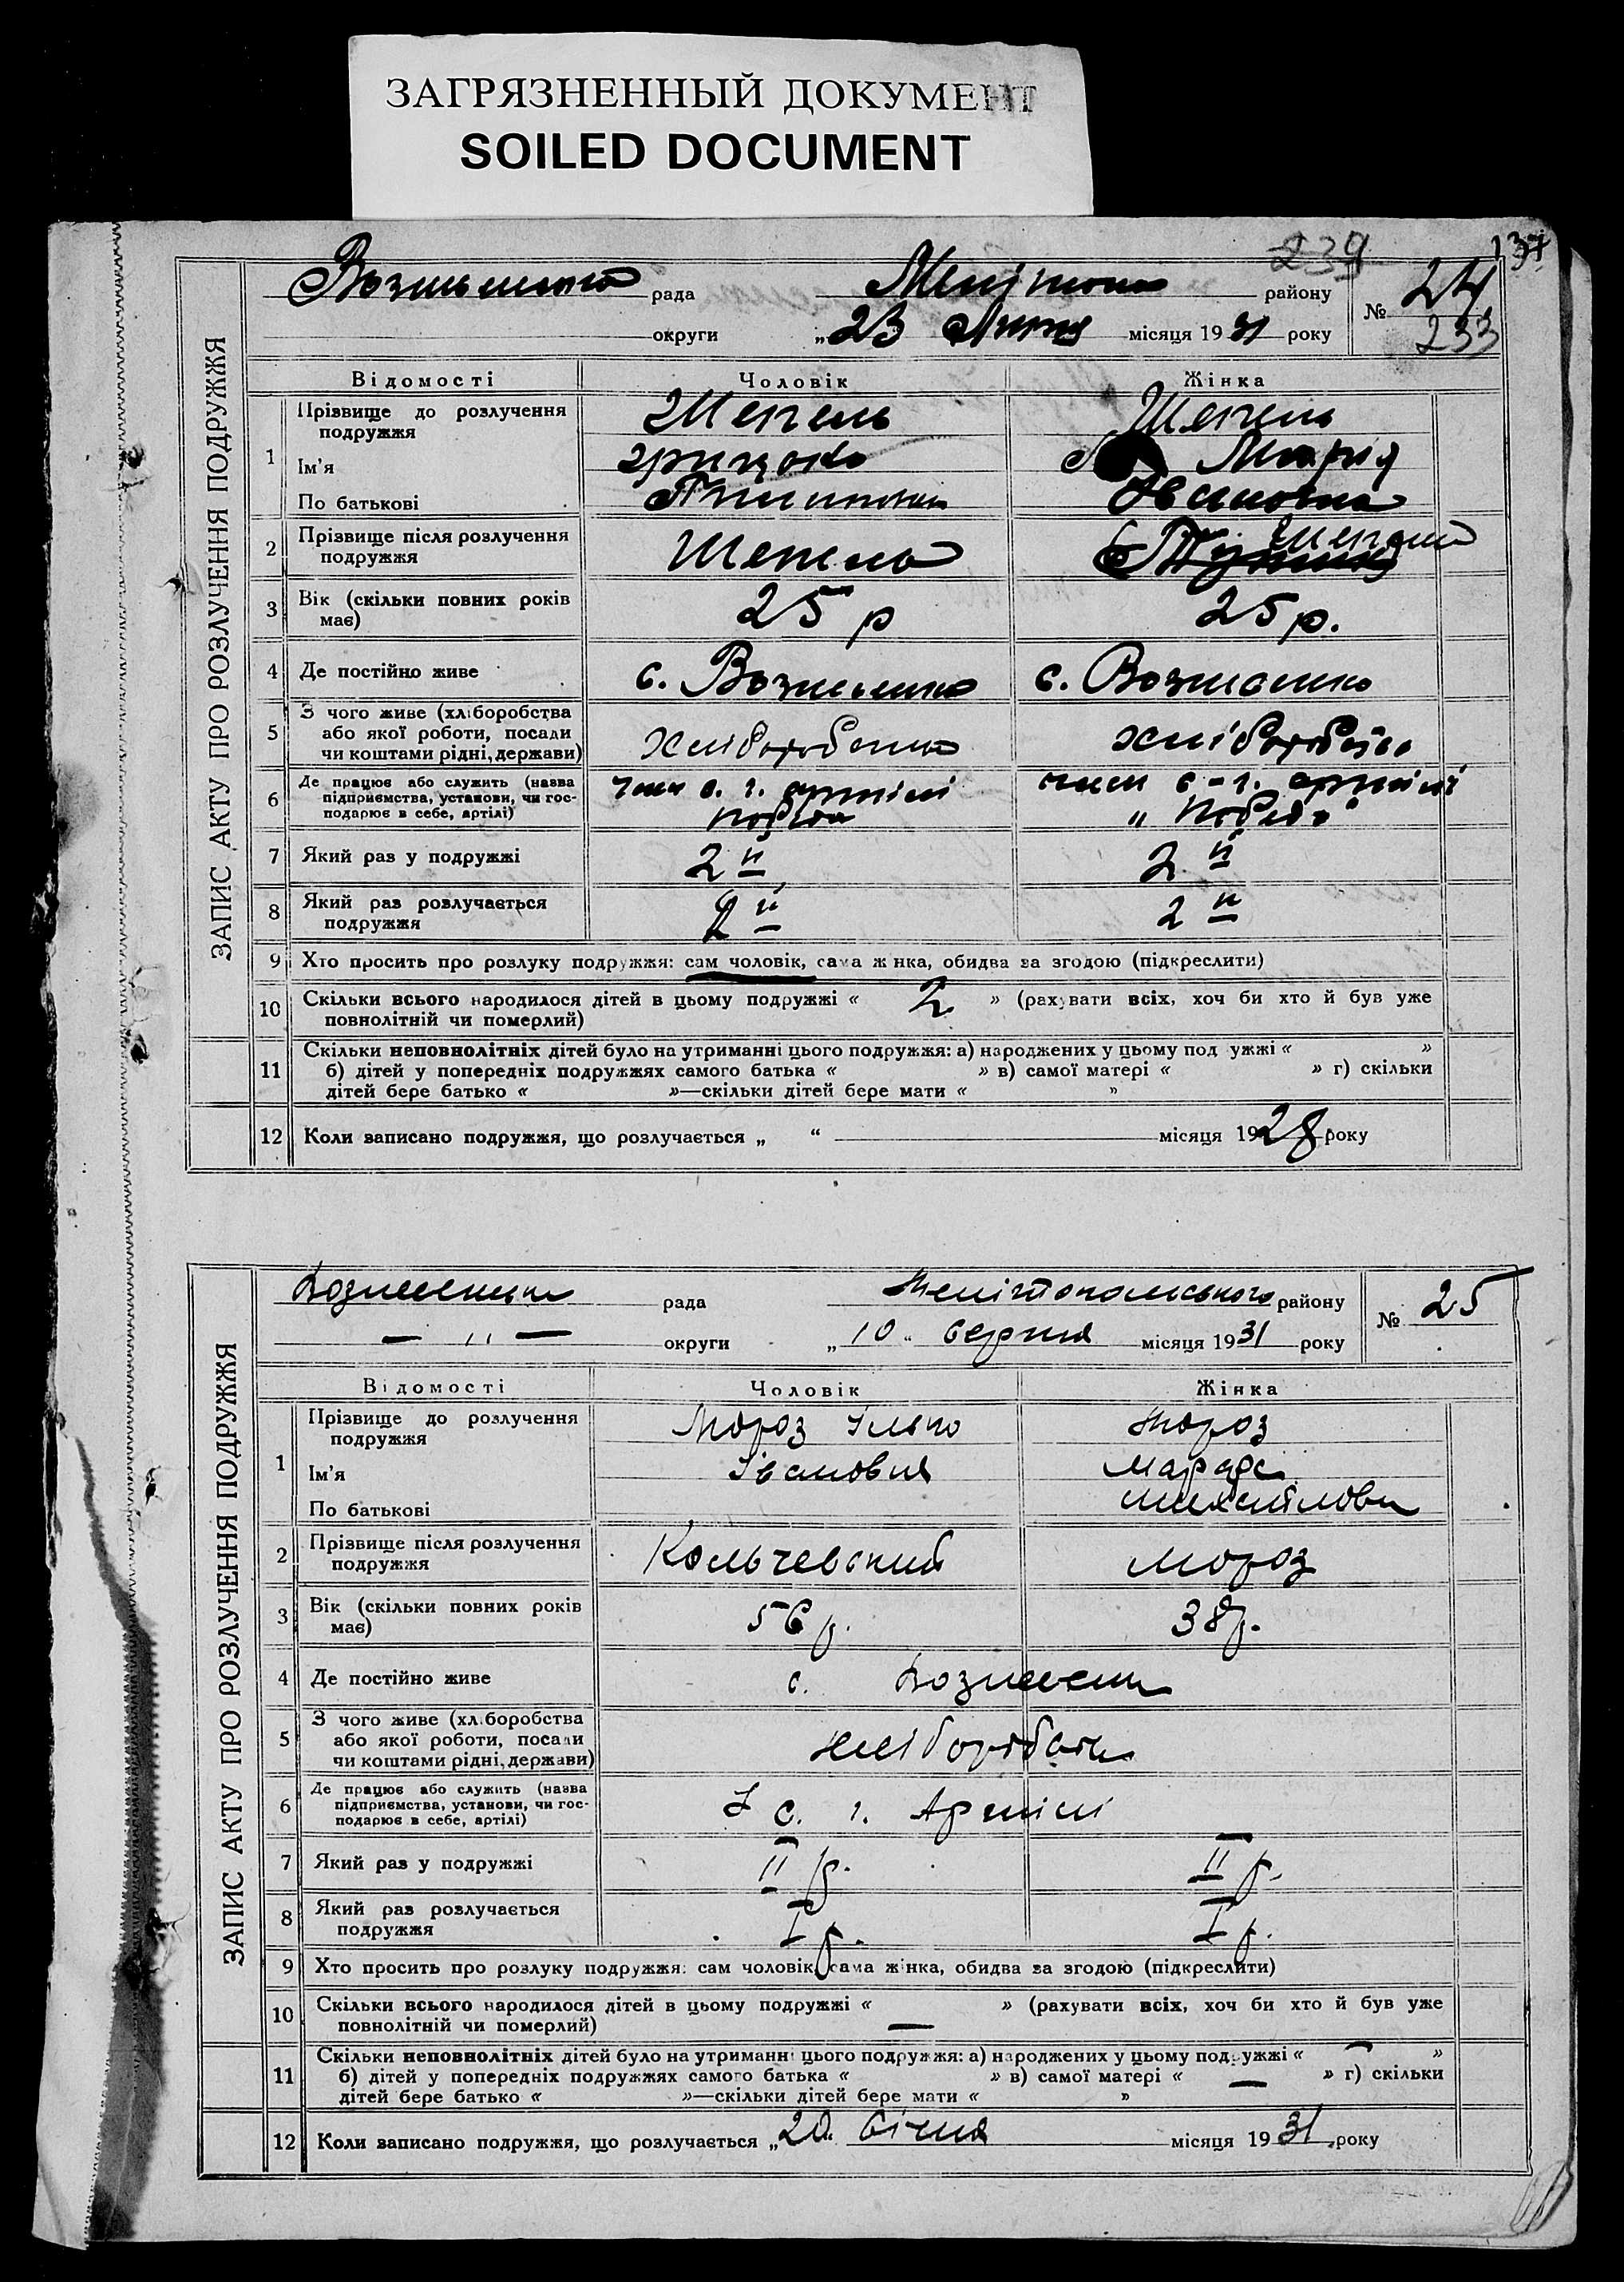 ЗАГРЯЗНЕННЫЙ ДОКУМЕНТ
SOILED DOCUMENT
239 137
рада району № 24
округи „23 Липня місяця 1931 року 233
ЗАПИС АКТУ ПРО РОЗЛУЧЕННЯ ПОДРУЖЖЯ
Відомості Чоловік Жінка
1 Прізвище до розлучення подружжя Шепель Шепель
Ім'я Грицько Марія
По батькові Івановна
2 Прізвище після розлучення подружжя Шепель
3 Вік (скільки повних років має) 25 р 25 р.
4 Де постійно живе с. с.
5 З чого живе (хліборобства або якої роботи, посади чи коштами рідні, держави)
6 Де працює або служить (назва підприємства, установи, чи господарює в себе, артілі) член с. г. артілі член с-г. артілі
„Победа"
7 Який раз у подружжі 2й 2й
8 Який раз розлучається подружжя 2й 2й
9 Хто просить про розлуку подружжя: сам чоловік, сама жінка, обидва за згодою (підкреслити)
10 Скільки всього народилося дітей в цьому подружжі « 2 » (рахувати всіх, хоч би хто й був уже
повнолітній чи померлий)
11 Скільки неповнолітніх дітей було на утриманні цього подружжя: а) народжених у цьому подружжі « »
б) дітей у попередніх подружжях самого батька « » в) самої матері « » г) скільки
дітей бере батько « »—скільки дітей бере мати « »
12 Коли записано подружжя, що розлучається „ “ місяця 1928 року
рада Мелітопольського району № 25
— " — округи „10" серпня місяця 1931 року
ЗАПИС АКТУ ПРО РОЗЛУЧЕННЯ ПОДРУЖЖЯ
Відомості Чоловік Жінка
1 Прізвище до розлучення подружжя Мороз Ілько Мороз
Ім'я Іванович Марфа
По батькові Михайловн
2 Прізвище після розлучення подружжя Кольчевский Мороз
3 Вік (скільки повних років має) 56 р. 38 р.
4 Де постійно живе с.
5 З чого живе (хліборобства або якої роботи, посади чи коштами рідні, держави)
6 Де працює або служить (назва підприємства, установи, чи господарює в себе, артілі) с. г. Артілі
7 Який раз у подружжі II р. II р.
8 Який раз розлучається подружжя I р. I р.
9 Хто просить про розлуку подружжя: сам чоловік, сама жінка, обидва за згодою (підкреслити)
10 Скільки всього народилося дітей в цьому подружжі « — » (рахувати всіх, хоч би хто й був уже
повнолітній чи померлий)
11 Скільки неповнолітніх дітей було на утриманні цього подружжя: а) народжених у цьому подружжі « — »
б) дітей у попередніх подружжях самого батька « » в) самої матері « — » г) скільки
дітей бере батько « »—скільки дітей бере мати « »
12 Коли записано подружжя, що розлучається „20" січня місяця 1931 року